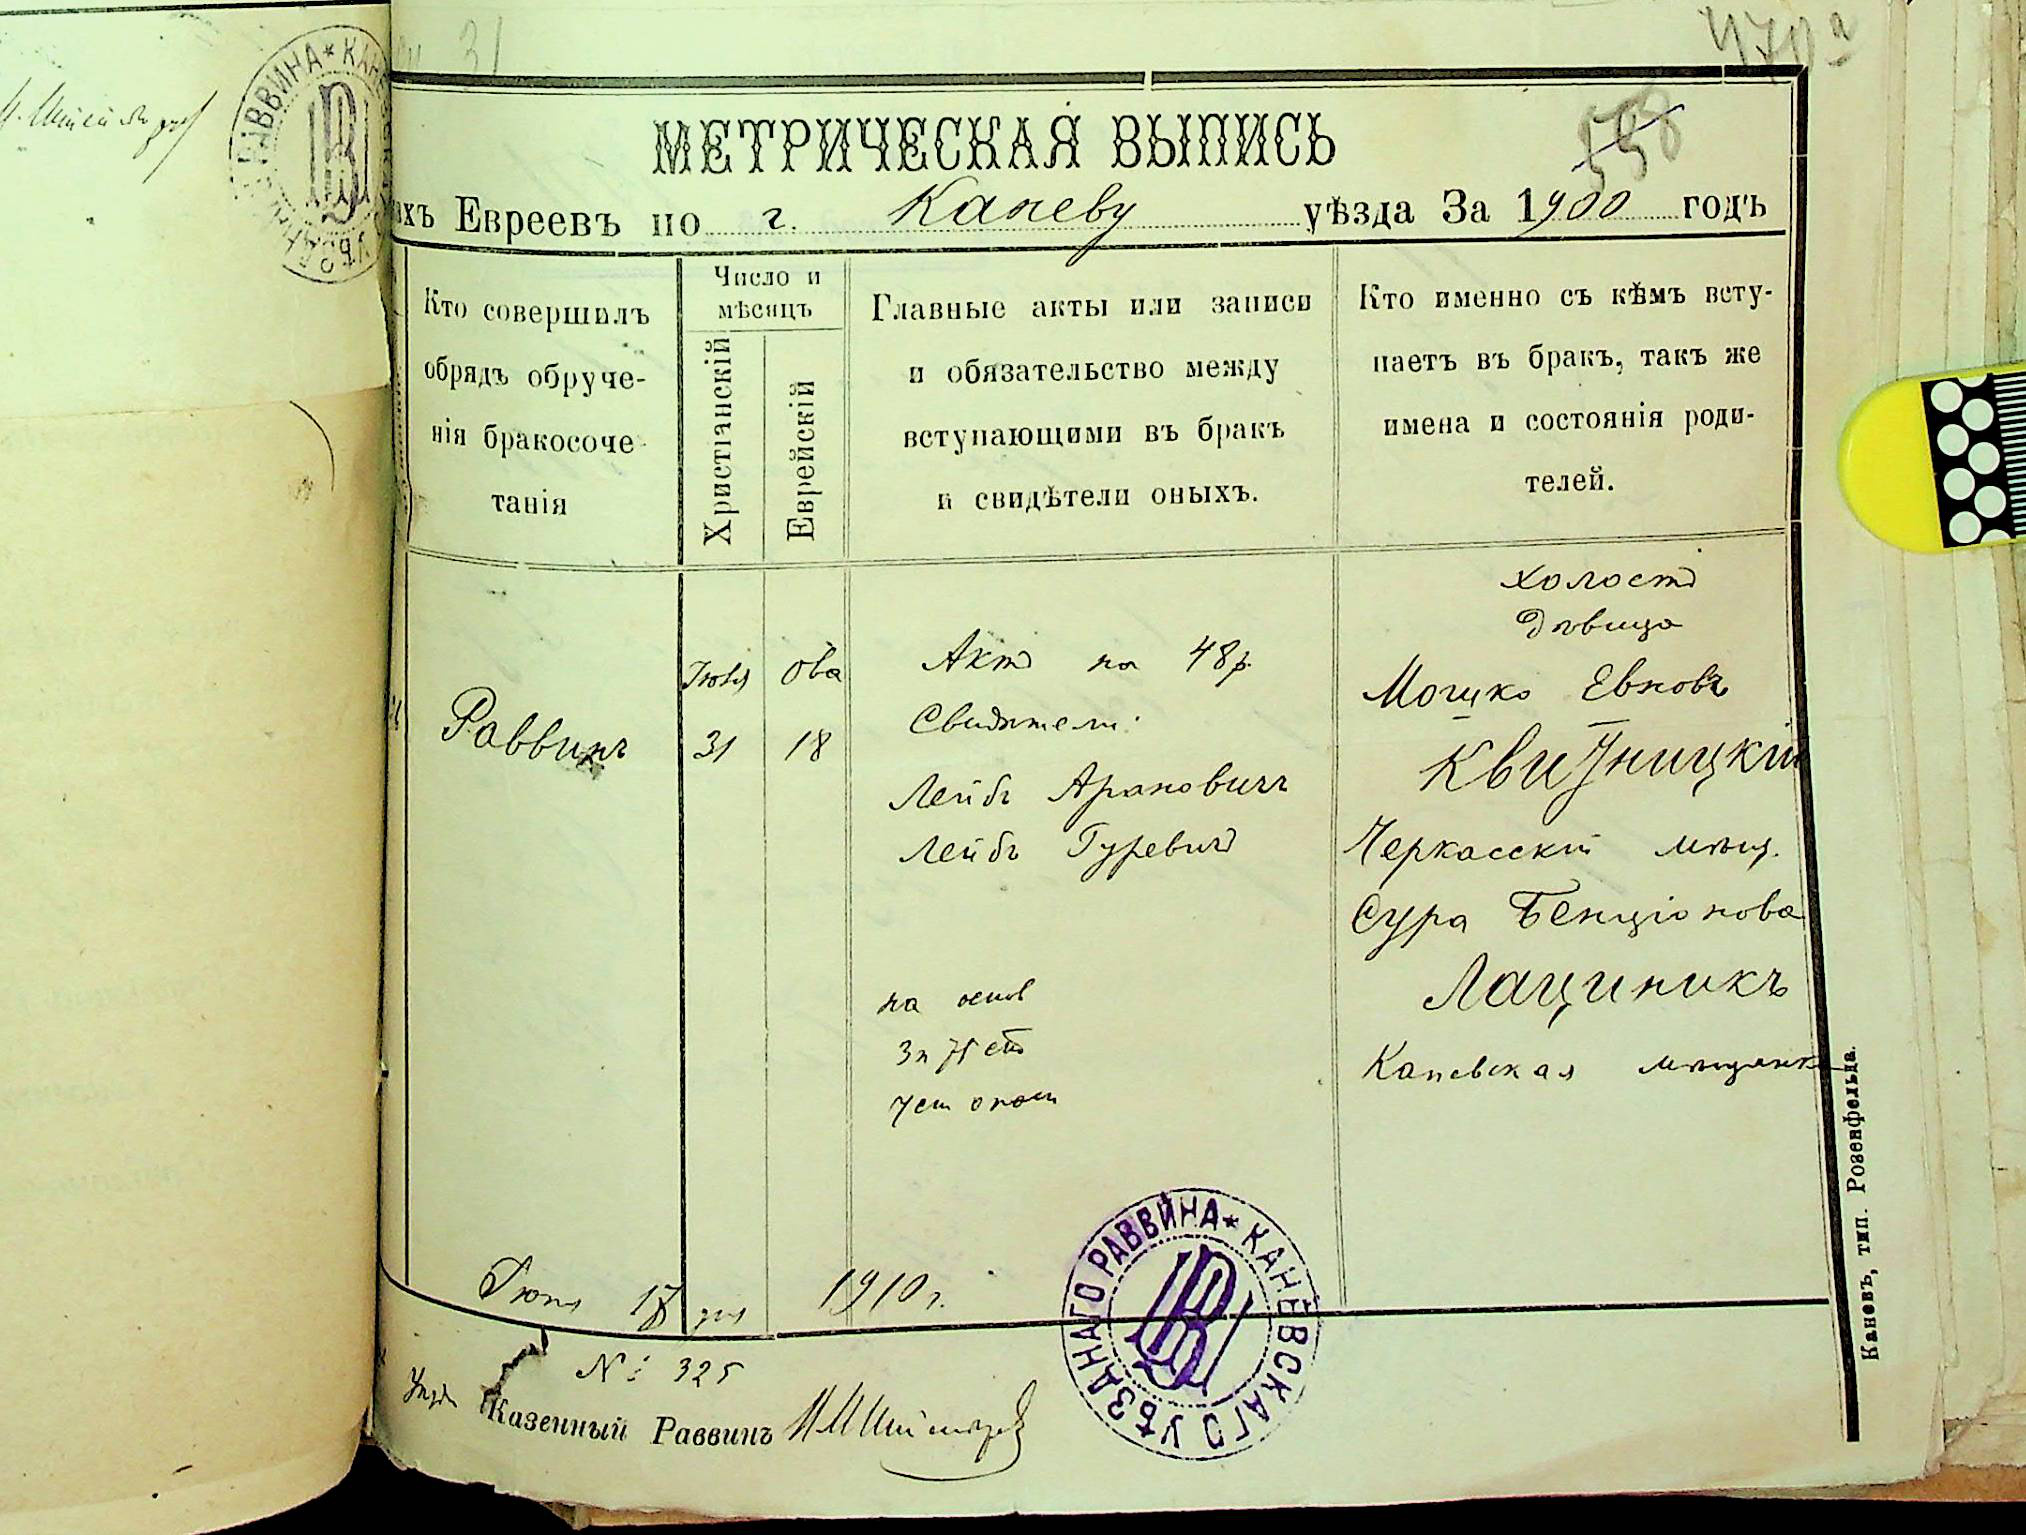 31
470а
558
МЕТРИЧЕСКАЯ ВЫПИСЬ
ихъ Евреевъ по г. Каневу уѣзда За 1900 годъ
Кто совершилъ
обрядъ обруче-
нія бракосоче-
танія
Число и
мѣсяцъ
Христіанскій
Еврейскій
Главные акты или записи
и обязательство между
вступающими въ бракъ
и свидѣтели оныхъ.
Кто именно съ кѣмъ всту-
паетъ въ бракъ, такъ же
имена и состоянія роди-
телей.
Раввинъ
Іюля
31
Ова
18
Актъ на 48 р.
Свидѣтели:
Лейбъ Арановичъ
Лейбъ Гуревичъ
на основ
холостъ
дѣвица
Мошко Евновъ
Квитницкій
Черкасскій мѣщ.
Сура Бенціонова
Лациникъ
Каневская мѣщанка
Іюня 17 дня 1910 г.
№: 325
Уѣзд Казенный Раввинъ
КАНЕВСКАГО УѢЗДНАГО РАВВИНА
Каневъ, тип. Розенфельда.